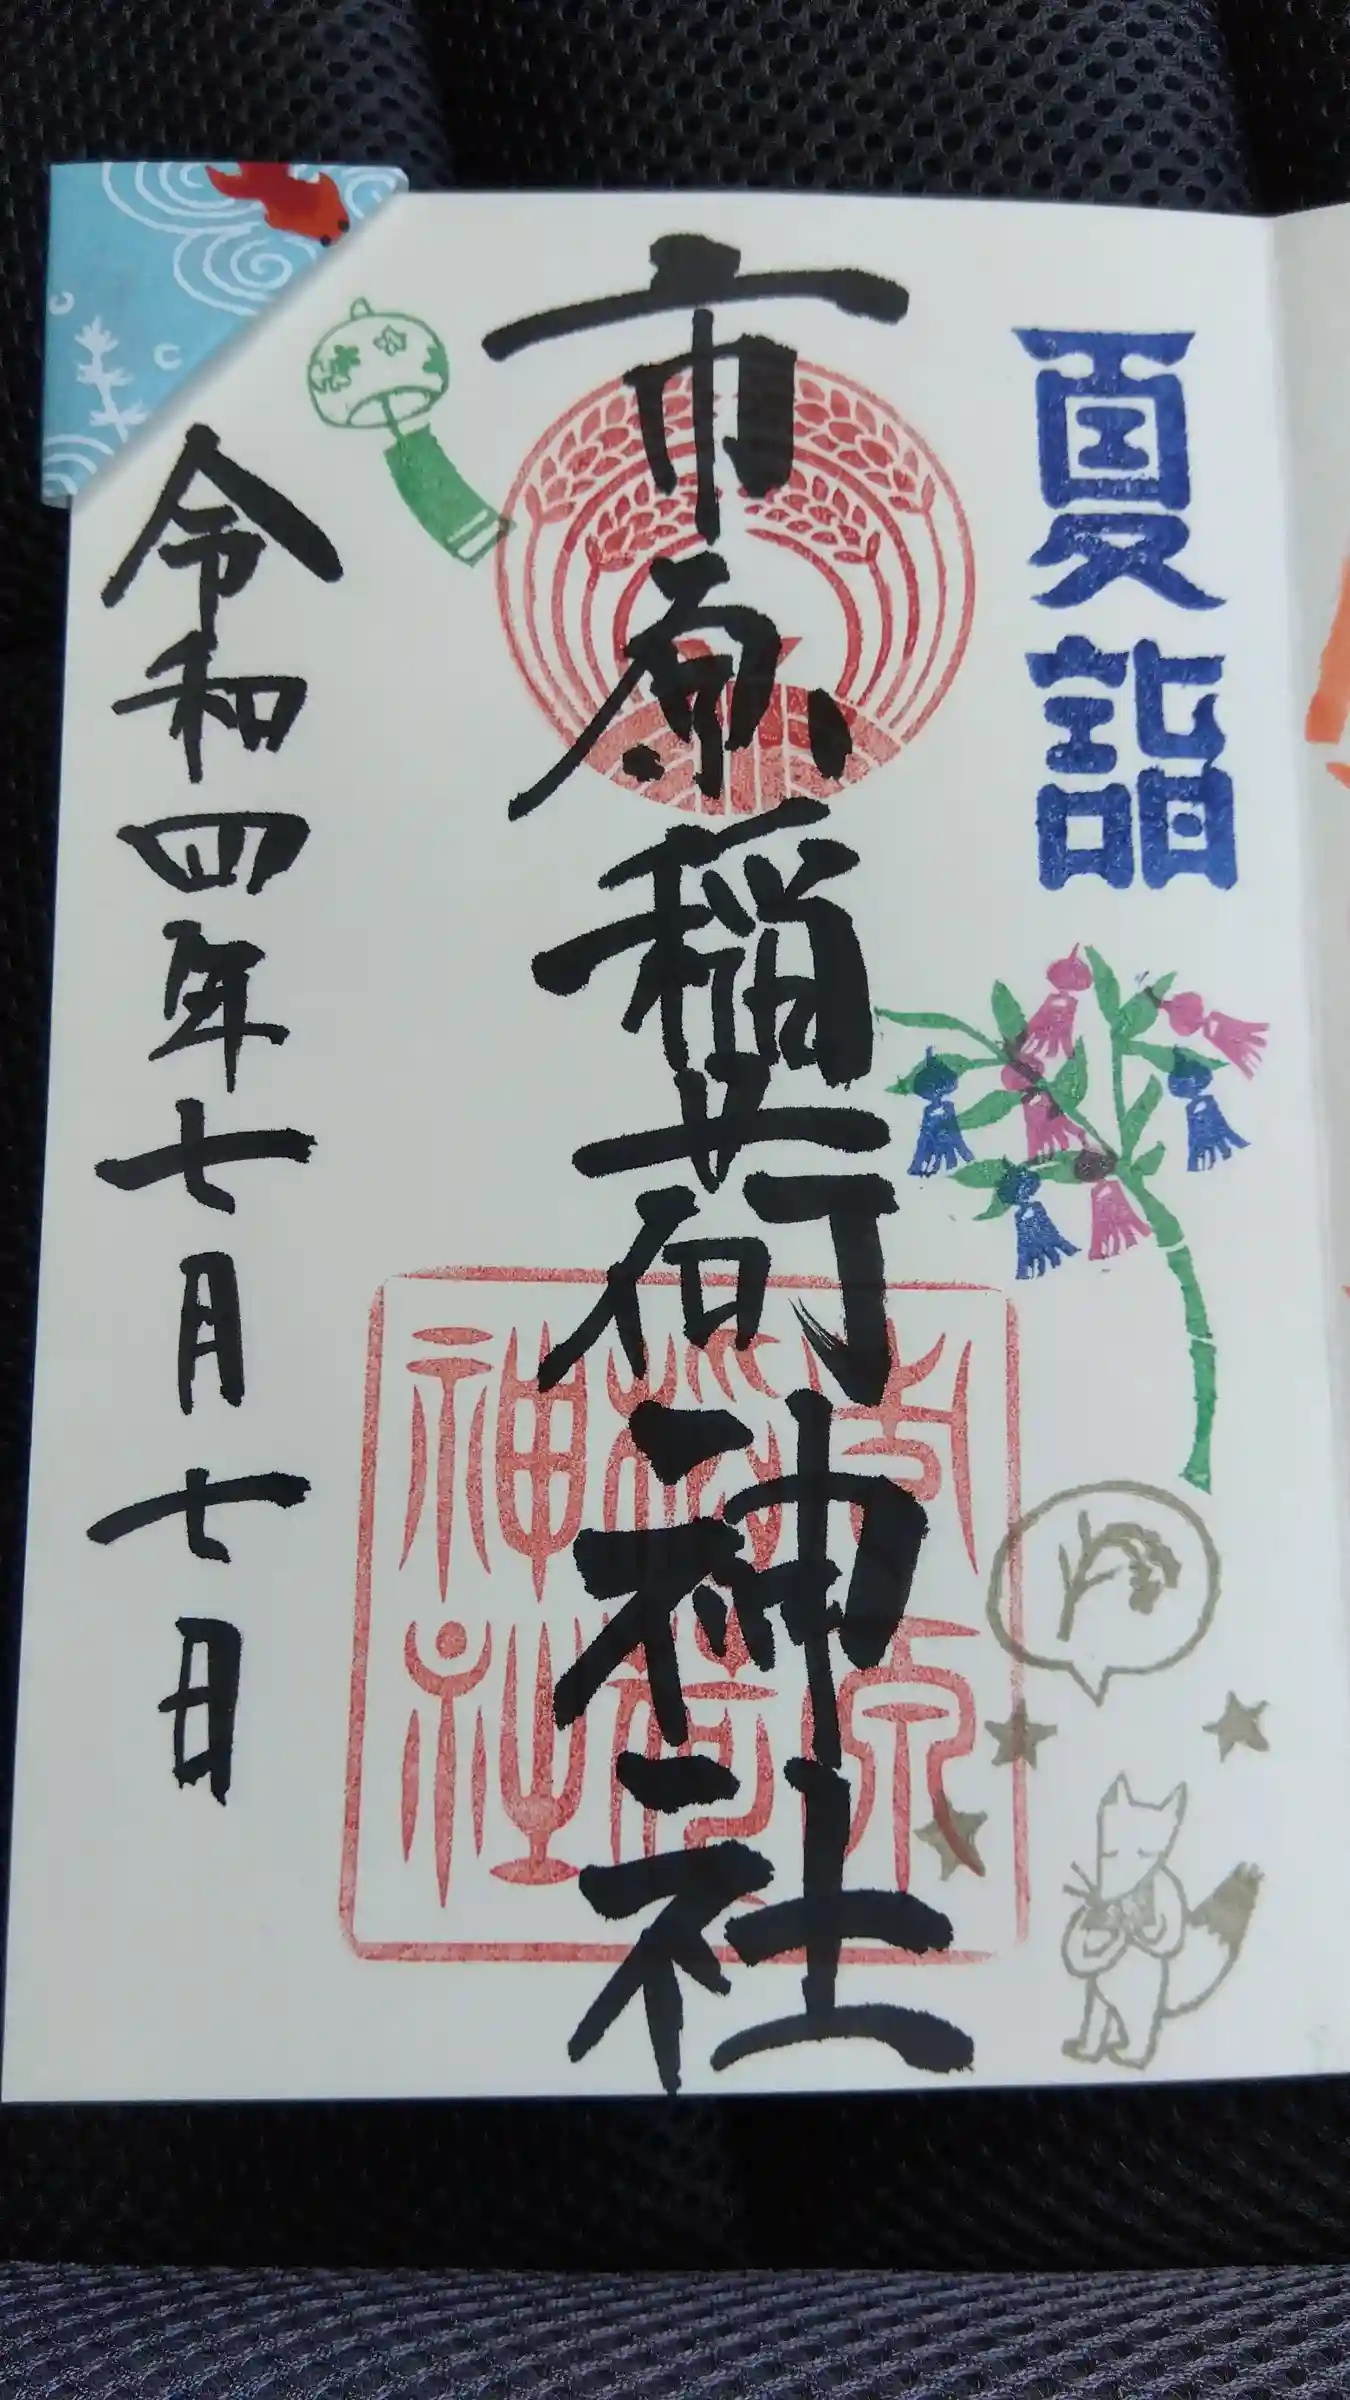 夏詣
市原稲荷神社
市原
稲荷
神社
令和四年七月七日